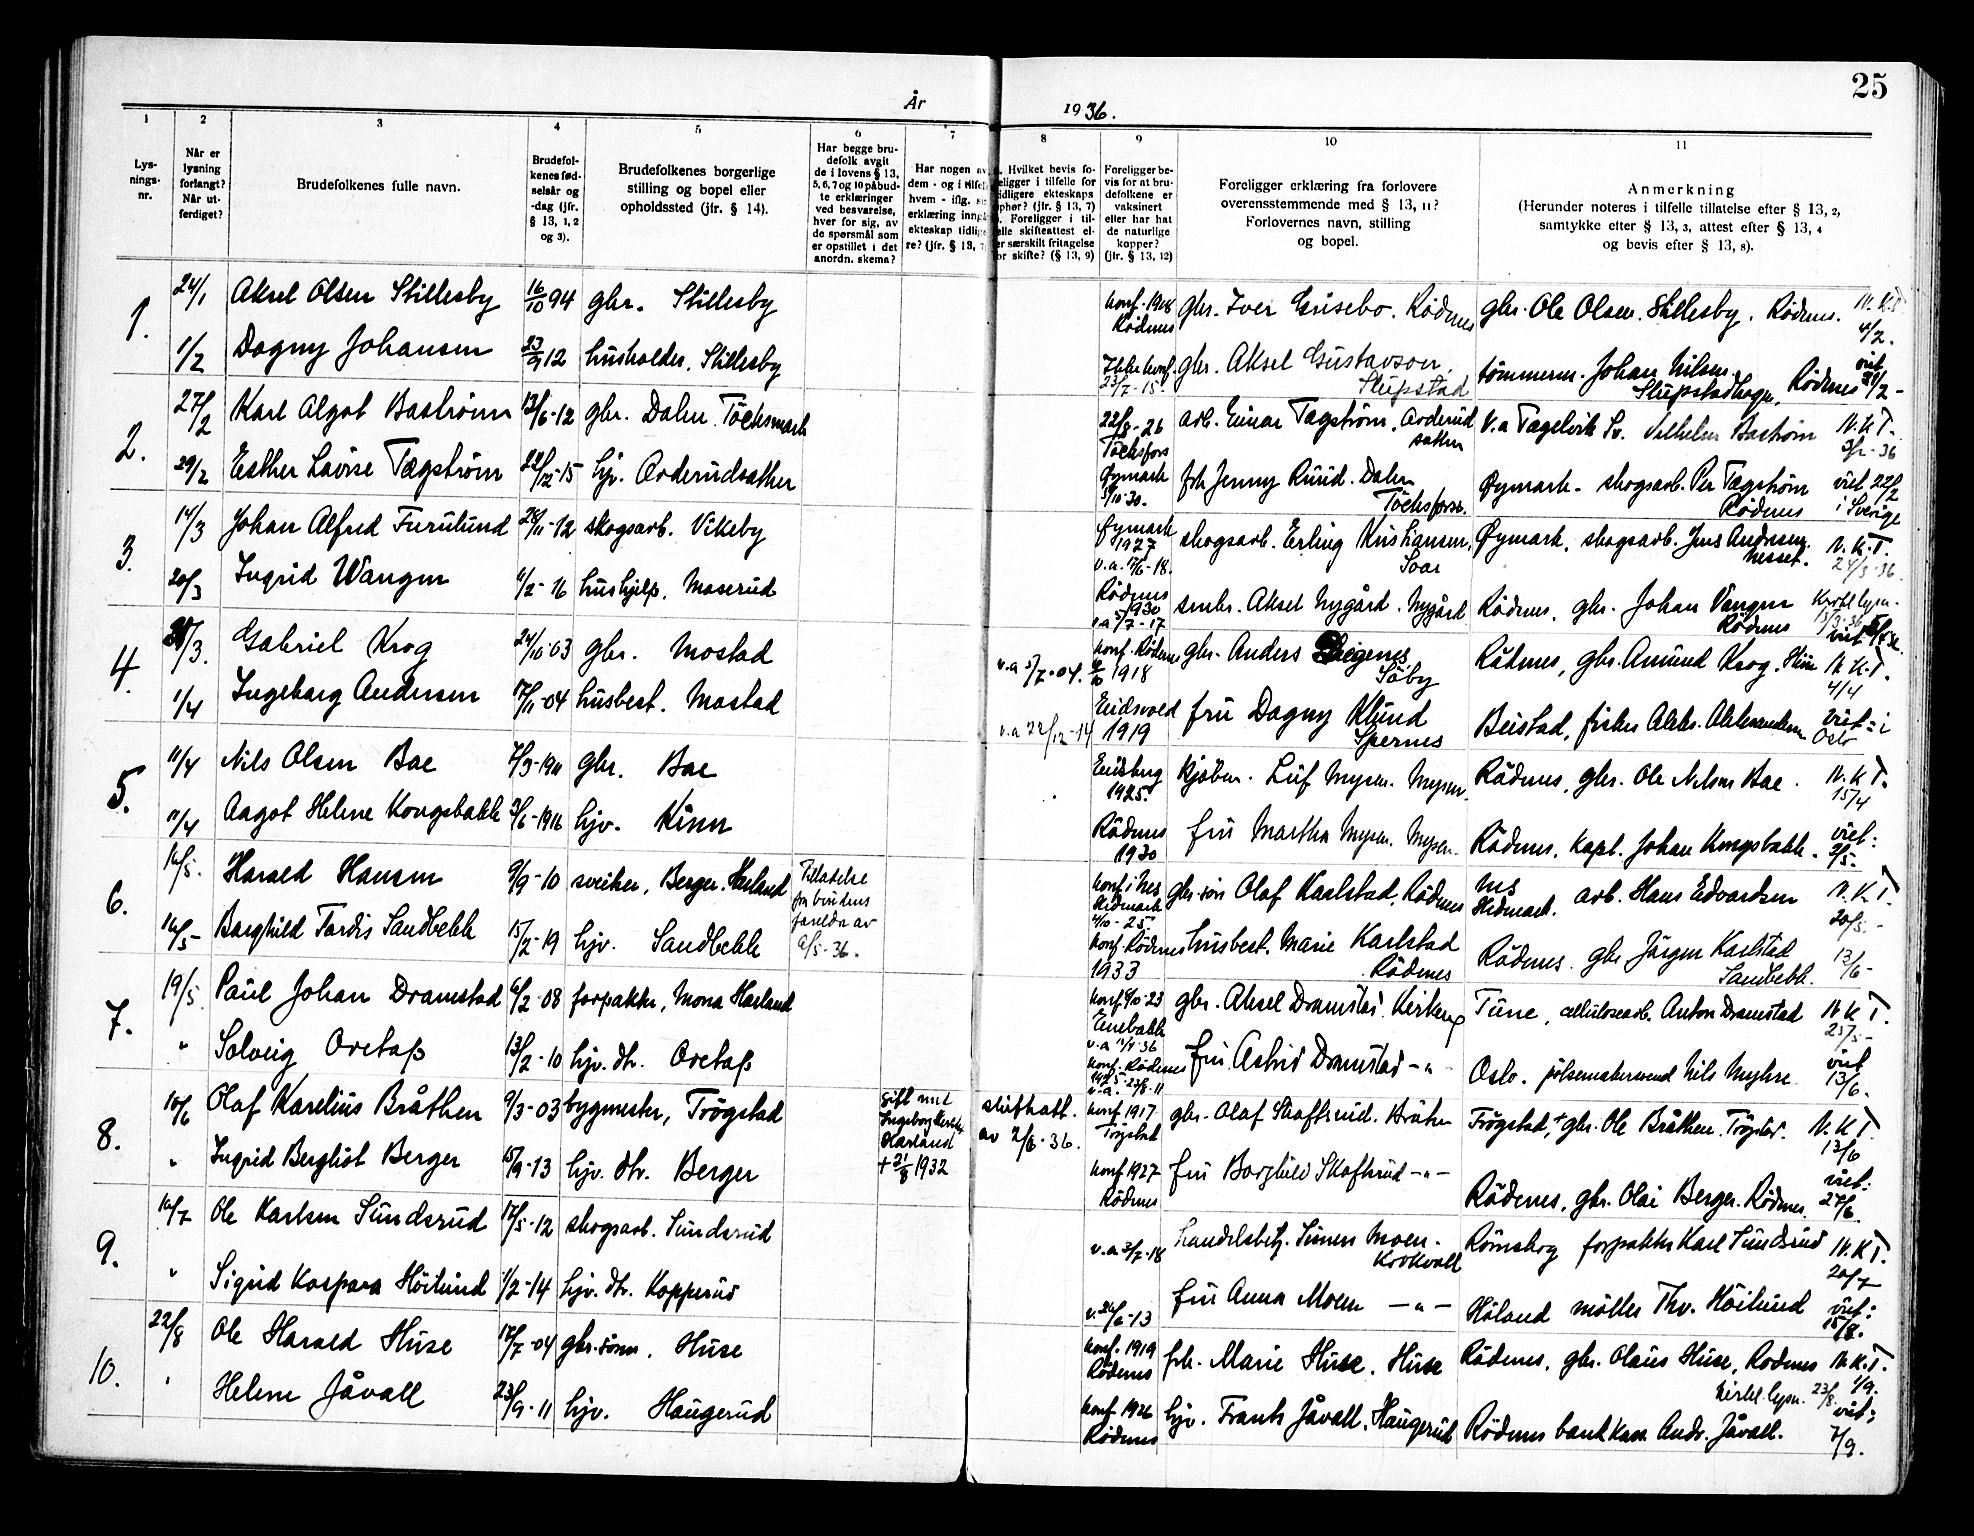 25
År 1936.
1 2 3 4 5 6 7 8 9 10 11
Lys-
nings-
nr.
Når er
lysning
forlangt?
Når ut-
ferdiget?
Brudefolkenes fulle navn.
Brudefol-
kenes fød-
selsår og
-dag (jfr.
§ 13, 1, 2
og 3).
Brudefolkenes borgerlige
stilling og bopel eller
opholdssted (jfr. § 14).
Har begge bru-
defolk avgit
de i lovens § 13,
5, 6, 7 og 10 påbud-
te erklæringer
ved besvarelse,
hver for sig, av
de spørsmål som
er opstillet i det
anordn. skema?
Har nogen av
dem - og i tilfel
hvem - iflg.
erklæring inng
ekteskap tidlig
re? (jfr. § 13,
Hvilket bevis fo-
religger i tilfelle for
tidligere ekteskaps
ophør? (jfr. § 13, 7)
Foreligger i til-
elle skifteattest el-
er særskilt fritagelse
or skifte? (§ 13, 9)
Foreligger be-
vis for at bru-
defolkene er
vaksinert
eller har hat
de naturlige
kopper?
(jfr. § 13, 12)
Foreligger erklæring fra forlovere
overensstemmende med § 13, 11?
Forlovernes navn, stilling
og bopel.
Anmerkning
(Herunder noteres i tilfelle tillatelse efter § 13, 2,
samtykke efter § 13, 3, attest efter § 13, 4
og bevis efter § 13, 8).
1. 24/1 Aksel Olsen Stillesby 16/10 94 gbr. Stillesby konf. 1908 Rödenes gbr. Iver Grisebo. Rödenes gbr. Ole Olsen. Stillesby. Rödenes. N.K.T. 4/2.
1/2 Dagny Johansen 23/9 12 husholder. Stillesby Ikke konf. 23/7-15. gbr. Aksel Gustavson. Slupstad tömmerm. Johan Nilsen. Slupstadhogn, Rödenes viet
2. 27/2 Karl Algot Baström 13/6-12 gbr. Dalen. Töcksmark 22/8-26 Töcksfors arb. Einar Tagström, Orderudsæther V.a Tagelvik Sv. Vilhelm Baström N.K.T. 3/2-36
29/2 Esther Lovise Tagström 22/12-15 hjv. Orderudsæther Øymark 5/10-30. frk Jenny Ruud. Dalen Töcksfors. Øymark - skogsarb. Per Tagström Rödenes viet 22/2 i Sverige
3. 14/3 Johan Alfred Furulund 28/11-12 skogsarb. Vikeby Øymark 1927 v.a. 17/6-18. skogsarb. Erling Kristiansen, Soar Øymark, skogsarb. Jens Andresen. Nesset. N.K.T. 24/3-36.
20/3 Ingrid Wangen 6/2-16 hushjelp. Moserud Rödenes 1930 v.a 5/7-17 smbr. Aksel Nygård. Nygård Rödenes, gbr. Johan Vangen Rödenes viet
4. 30/3. Gabriel Krog 24/10-03 gbr. Mostad v.a 5/7-04. konf. Rödenes 1918 gbr. Anders Söby Rödenes, gbr. Amund Krog. N.K.T. 4/4
1/4 Ingeborg Andersen 17/11-04 husbest. Mostad v.a 22/12-14 Eidsvold 1919 fru Dagny Klund Spernes Beistad, fisker Aleks. Aleksandersen viet: i Oslo
5. 11/4 Nils Olsen Boe 7/3-1911 gbr. Boe Eidsberg 1925. kjöbm. Leif Mysen. Mysen. Rödenes, gbr. Ole Nilsen Boe. N.K.T. 15/4
11/4 Aagot Helene Kongsbakk 3/6-1916 hjv. Kinn Rödenes 1930 fru Martha Mysen. Mysen. Rödenes. kapt. Johan Kongsbakk. viet: 2/5.
6. 16/5. Harald Hansen 9/9-10 sveiser, Berger. Harland Tilladelse fra brudens forældre av 9/5-36. konf i Nes Hedmark 4/10-25. gbr. sön Olaf Karlstad, Rödenes Nes Hedmark. arb. Hans Edvardsen N.K.T. 20/5.-
16/5- Borghild Tordis Sandbekk 15/2-19 hjv. Sandbekk konf. Rödenes 1933 husbest. Marie Karlstad Rödenes Rödenes gbr Jörgen Karlstad Sandbekk. 13/6-
7. 19/5. Paul Johan Dramstad 6/2-08 forpakter, Mona Harland konf 8/10-23 Enebakk v.a 14/4-36 gbr. Aksel Dramstad. Kirkeng Tune, cellulosearb. Anton Dramstad N.K.T. 25/5-
" Solveig Ovetass 13/2-10 hjv. dtr. Ovetass konf. Rödenes fru Astrid Dramstad -"- Oslo. pölsemakersvend Nils Myhre viet 13/6.
8. 10/6 Olaf Karelius Bråthen 9/3-03 bygmester, Trögstad gift med Ingeborg Harland + 31/8 1932 skifteatt. av 2/6-36. konf 1917 Trögstad gbr. Olaf Skofterud. Bråten Trögstad, gbr. Ole Bråthen. Trögst. N.K.T. 13/6
" Ingrid Bergliot Berger 15/9-13 hjv. dtr. Berger konf 1927 Rödenes fru Borghild Skofterud -"- Rödenes, gbr. Olai Berger. Rödenes. viet: 27/6.
9. 16/7 Ole Karlsen Sundsrud 17/5-12 skogsarb. Sundsrud v.a 3/7-18 handelsbetj. Simen Moen. Krokvoll Römskog forpakter Karl Sundsrud N.K.T. 20/7
" Sigrid Kaspara Höilund 1/2-14 hjv. dtr. Kopperud v. 26/6-13 fru Anna Moen -"- Höland möller Thv. Höilund viet: 15/8.
10. 22/8 Ole Harald Huse 17/7-04 gbr. sönn. Huse konf. 1919 Rödenes frk. Marie Huse. Huse Rödenes. gbr. Olaus Huse, Rödenes N.K.T. 1/9.
" Helene Jåvall 23/9-11 hjv. Haugerud konf 1926 Rödenes hjv. Frants Jåvall. Haugerud Rödenes bankkass. Andr. Jåvall. kirkel. lysn. 23/8. viet: 7/9.